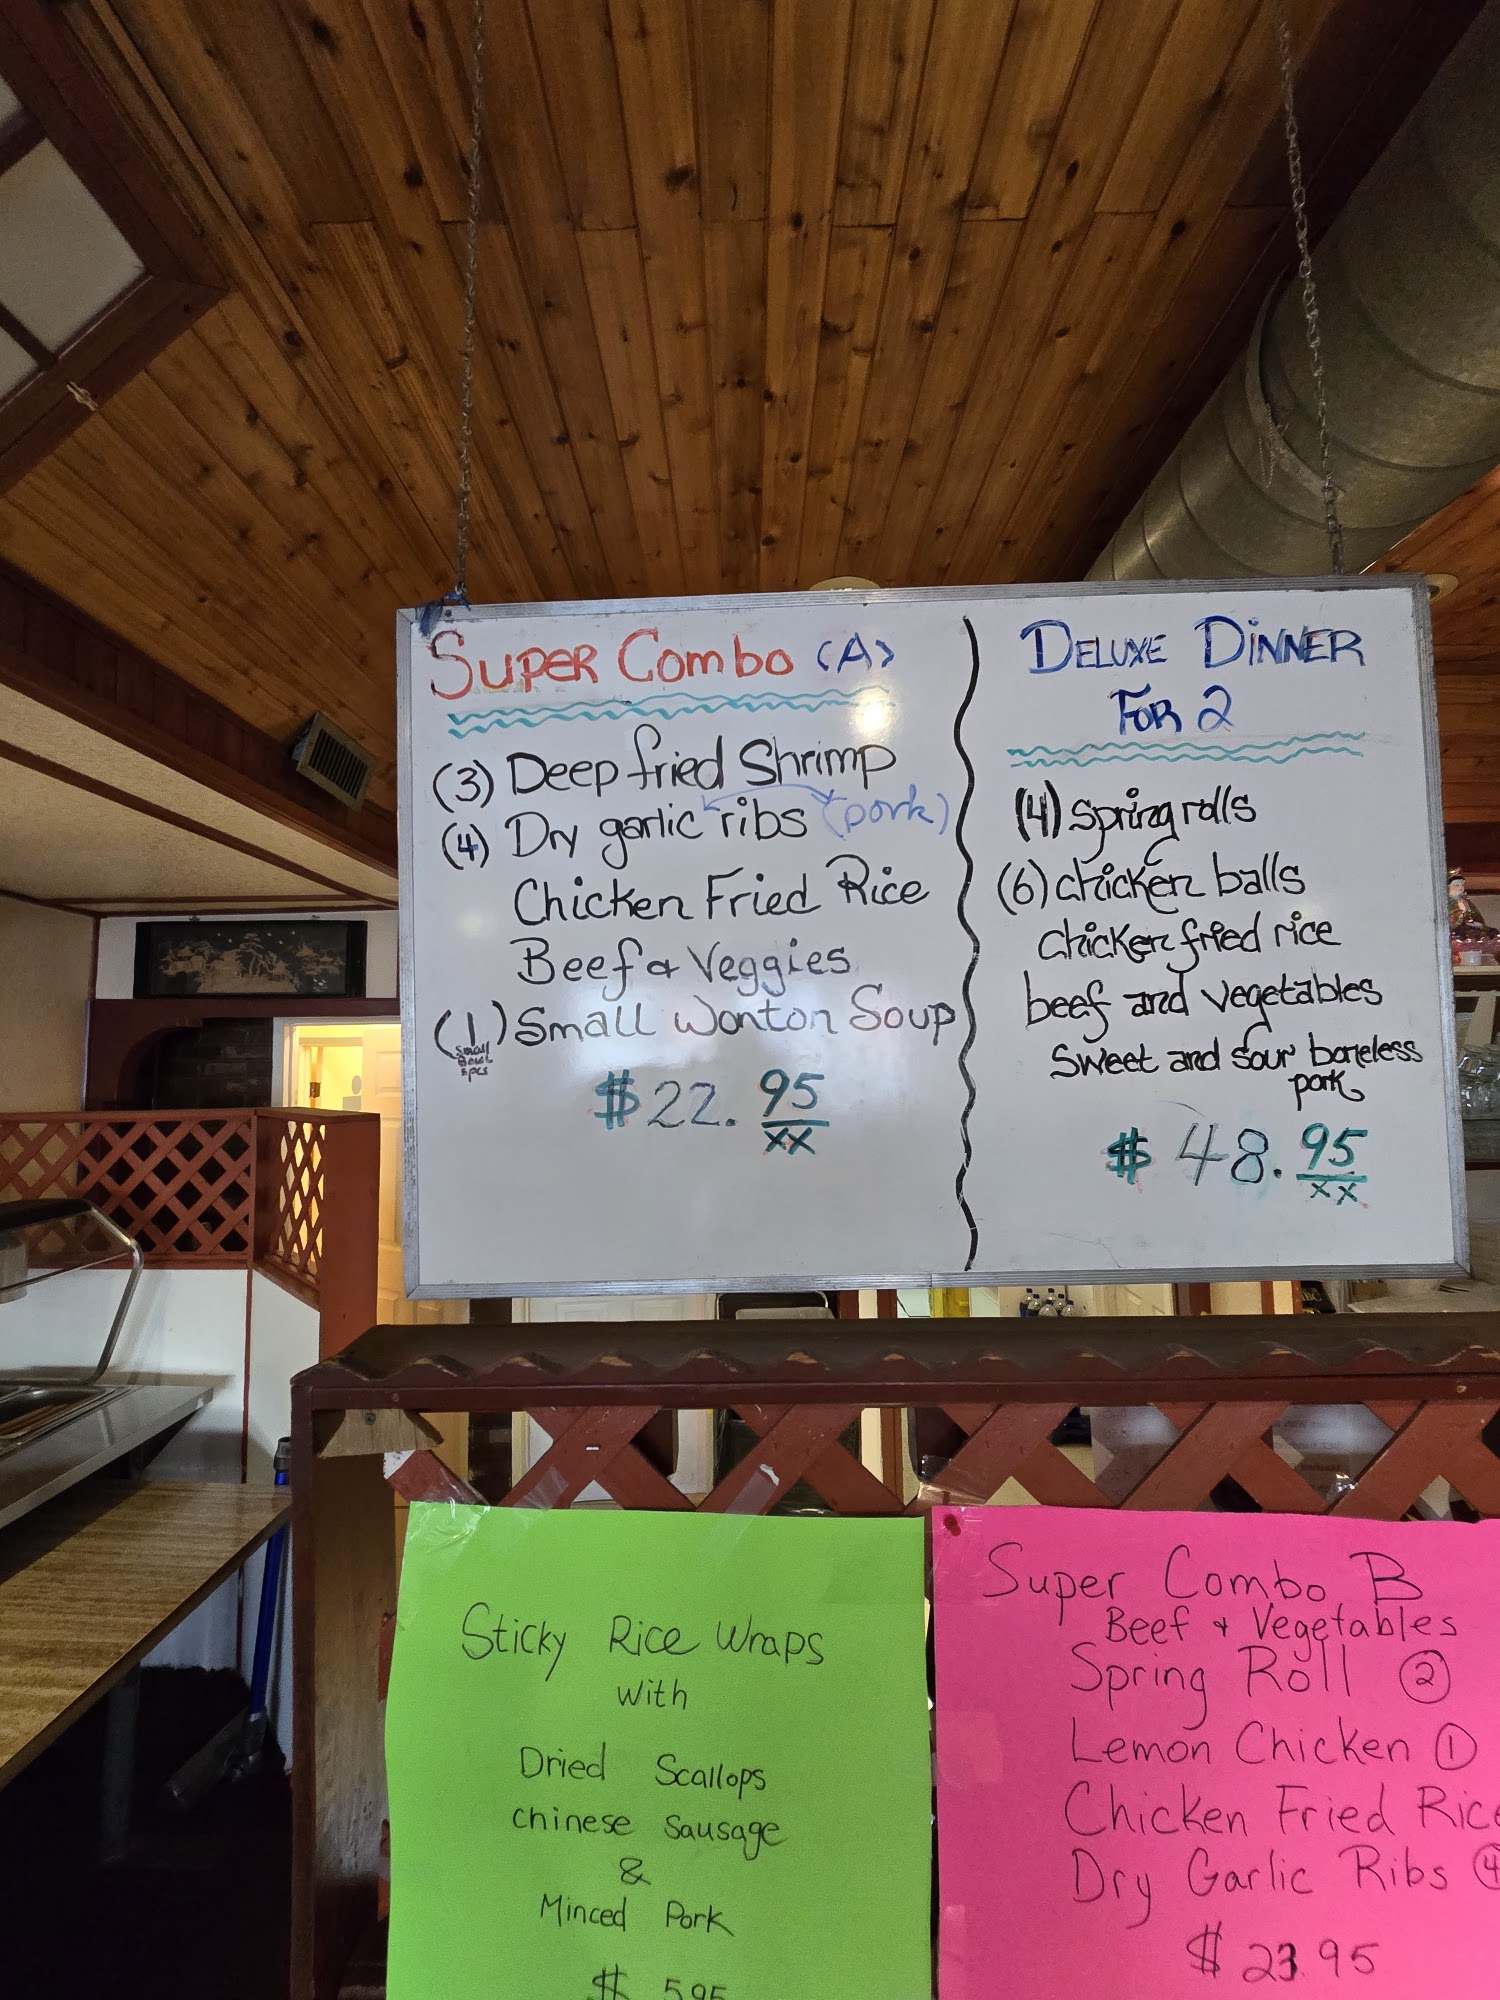 Super Combo <A>
(3) Deep fried Shrimp
(4) Dry garlic ribs (pork)
Chicken Fried Rice
Beef & Veggies
(1) Small Wonton Soup
small
Bowl
8pcs
$22.95
xx
DELUXE DINNER
FOR 2
(4) spring rolls
(6) chicken balls
chicken fried rice
beef and vegetables
sweet and sour boneless
pork
$48.95
xx
Sticky Rice Wraps
With
Dried Scallops
chinese sausage
&
Minced Pork
$5.95
Super Combo B
Beef & Vegetables
Spring Roll 2
Lemon Chicken 1
Chicken Fried Rice
Dry Garlic Ribs 4
$23.95